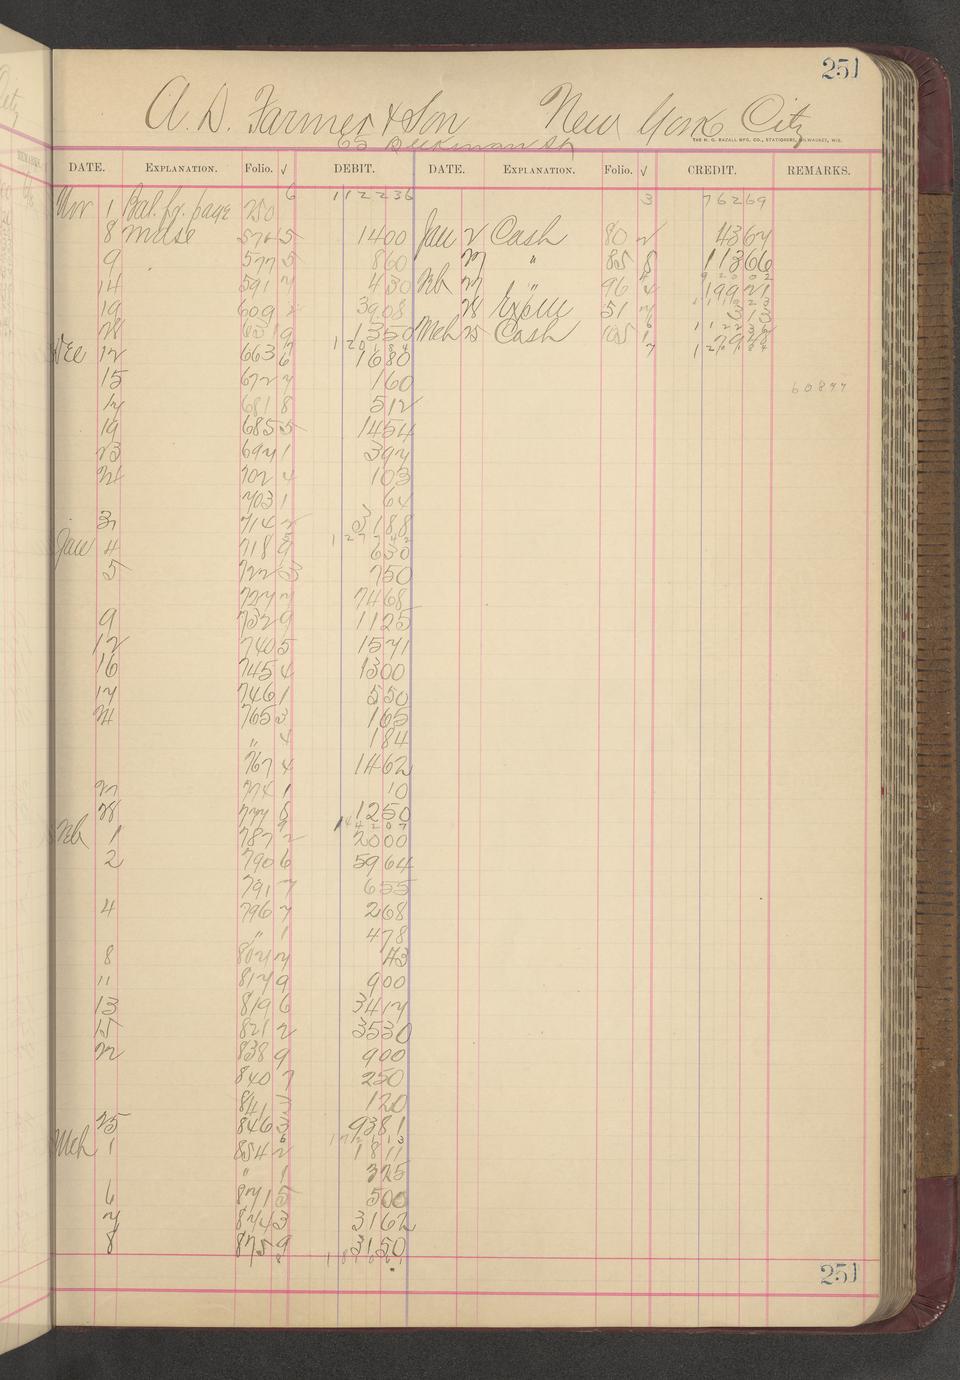 251
A. D. Farmer & Son New York City
63 Beekman St
THE H. G. RAZALL MFG. CO., STATIONERS, MILWAUKEE, WIS.
DATE. EXPLANATION. Folio. √ DEBIT. DATE. EXPLANATION. Folio. √ CREDIT. REMARKS.
Nov 1 Bal. fr. page 250 6 112236 3 76269
8 Mdse 576 5 1400 Jan 2 Cash 80 2 4367
9 577 5 860 27 " 85 8 11366
14 591 7 430 Feb 27 " 96 4 19921
19 609 2 3908 28 Expense 51 7 313
28 631 9 1350 Mch 25 Cash 105 1 7948
Dec 12 663 6 1680
15 672 7 160 60877
17 681 8 512
19 685 5 1454
23 694 1 397
24 702 4 103
703 1 64
31 714 2 3188
Jan 4 718 9 630
5 722 3 750
727 7 7468
9 732 9 1125
12 740 5 1571
16 745 4 1300
17 746 1 550
24 765 3 165
" 4 184
767 4 1462
27 774 1 10
28 777 8 1250
Feb 1 787 2 2000
2 790 6 5964
791 7 655
4 796 7 268
" 1 478
8 807 7 43
" 817 9 900
13 819 6 3417
15 821 2 3530
22 838 9 900
840 7 250
841 3 120
25 846 3 9381
Mch 1 854 2 1811
" 1 325
6 871 5 500
7 874 3 3162
8 875 9 3150
251